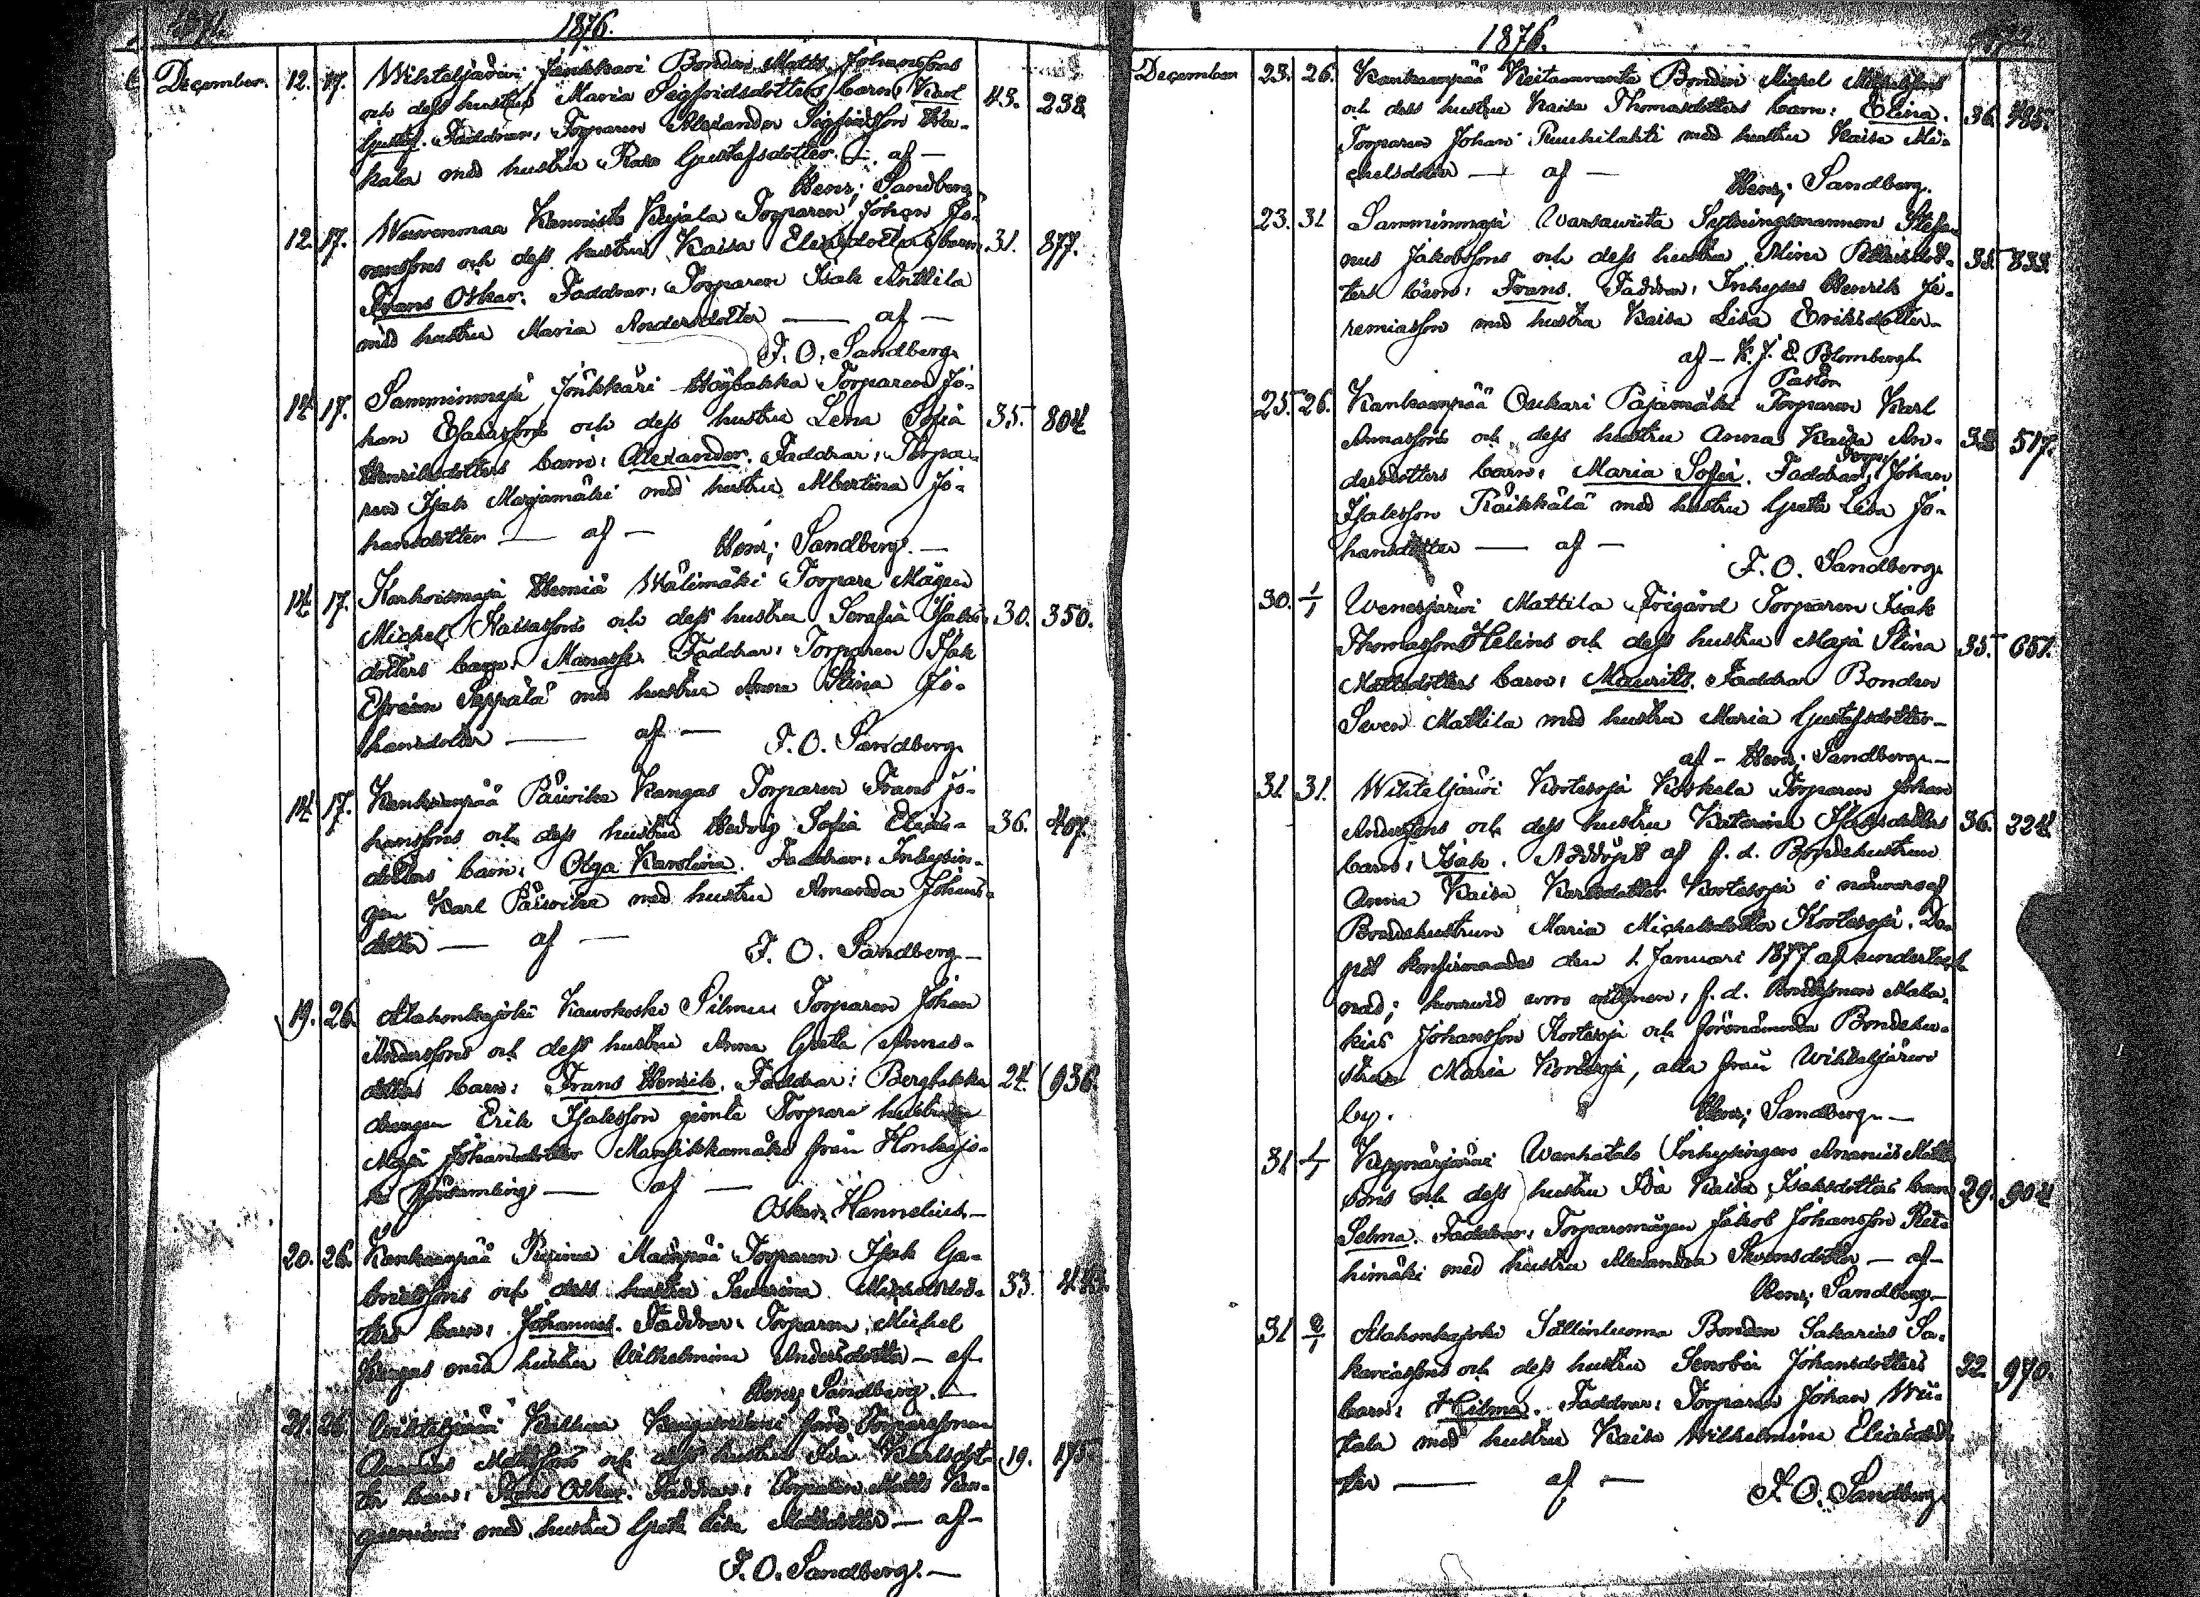 1876.
December. 12. 17. Wihteljärvi Jänkkäri Bonden Matts Johanssons
och dess hustru Maria Sigfridsdotters barn: Karl 43. 238
Gustaf. Faddrar: Torparen Alexander Sigfridsson
kala med hustru Rosa Gustafsdotter. — af —
Henr; Sandberg
12. 17. Wenenmaa Kannisto Kujala Torparen Johan
och dess hustru Kaisa Eliasdotters barn: 31. 877.
Frans Oskar. Faddrar: Torparen Isak Anttila
med hustru Maria Andersdotter — af —
F. O. Sandberg.
14 17. Samminmaja Jänkkäri Torparen Jo-
han Esaiassons och dess hustru Lena Sofia 35. 804
Henriksdotters barn: Alexander. Faddrar: Torpa-
ren Isak Marjamäki med hustru Albertina Jo-
hansdotter — af — Henr; Sandberg. —
14 17. Karhoismaja Hemiä Wälimäki Torpare Mågen
Michel och dess hustru Serafia Isaks- 30. 350.
dotters barn: Manasse. Faddrar: Torparen Isak
Efraim Seppälä med hustru Anna Stina Jo-
hansdotter — af — F. O. Sandberg.
14 17. Kankaanpää Päivike Kangas Torparen Frans Jo-
hanssons och dess hustru Hedvig Sofia Elias- 36. 407
dotters barn: Olga Karolina. Faddrar: Inhysin-
gen Karl Päivike med hustru Amanda Johans-
dotter — af — F. O. Sandberg —
19. 26 Alahonkajoki Kawokoski Silmu Torparen Johan
Anderssons och dess hustru Anna Greta Annas-
dotters barn: Frans Henrik. Faddrar: Bergbacka 24. 936
drengen Erik Isaksson gemte Torpare hustrun
Maja Johansdotter Mansikkamäki från Honkajo-
ki församling — af —
Oskar Hannelius —
20. 26. Kankaanpää Torparen Isak Ga-
brielssons och dess hustru Severina Michelsdot- 33.
ters barn: Johannes. Faddrar: Torparen Michel
Kangas med hustru Wilhelmina Andersdotter — af —
Henr; Sandberg. —
21. 26. Wihteljärvi
Ananias Mattssons och dess hustru Ida Karlsdot- 19. 175
ters barn: Frans Oskar. Faddrar: Torparen Matts Kan-
med hustru Greta Lisa Mattsdotter — af —
F. O. Sandberg. —
1876.
December 23. 26. Kankaanpää Bonden Michel Michelssons
och dess hustru Kaisa Thomasdotters barn: Elina. 36. 485.
Torparen Johan Ruuhilahti med hustru Kaisa Mi-
chelsdotter — af — Henr; Sandberg.
23. 31 Samminmaja Warsawirta Sytningsmannen Stefa-
nus Jakobssons och dess hustru Mina 35. 833
ters barn: Frans. Faddrar: Inhyses Henrik Je-
remiasson med hustru Kaisa Lisa Eriksdotter —
af — K. J. E. Blombergh
Pastor
25. 26. Kankaanpää Oukari Pajamäki Torparen Karl
Annassons och dess hustru Anna Kaisa An- 38 517.
dersdotters barn: Maria Sofia. Faddrar: Torp: Johan
Isaksson Räikkälä med hustru Greta Lisa Jo-
hansdotter — af —
F. O. Sandberg.
30. 1/1 Wenesjärvi Mattila Frigård Torparen Isak
Thomasson Helins och dess hustru Maja Stina 35. 651.
Mattsdotters barn: Maurits. Faddrar Bonden
Seven Mattila med hustru Maria Gustafsdotter —
af — Henr; Sandberg. —
31. 31. Wihteljärvi Kortesoja Koskela Torparen Johan
Anderssons och dess hustru Katarina Isaksdotters 36. 224
barn: Isak. Nöddöpt af f. d. Bondehustrun
Anna Kaisa Karlsdotter Kortesoja i närvaro af
Bondehustrun Maria Michelsdotter Kortesoja. Do-
pet konfirmerades den 1. Januari 1877 af undertech-
nad; hwarwid woro vittnen: f. d. Bondesonen Mala-
kias Johansson Kortesoja och förenämnda Bondehu-
strun Maria Kortesoja, alla från Wihteljärvi
by. Henr; Sandberg. —
31 1/1 Kyynärjärvi Wanhatalo Inhysingen Ananias Matts-
sons och dess hustru Ida Kaisa Isaksdotters barn 29. 904
Selma. Faddrar: Torparemågen Jakob Johansson Rii-
himäki med hustru Alexandra Svensdotter — af —
Henr; Sandberg —
31 2/1 Alahonkajoki Sällinluoma Bonden Sakarias Sa-
kariassons och dess hustru Senobia Johansdotters 32. 970.
barn: Hilma. Faddrar: Torparen Johan Wii-
tala med hustru Kaisa Wilhelmina Eliasdot-
ter — af — F. O. Sandberg